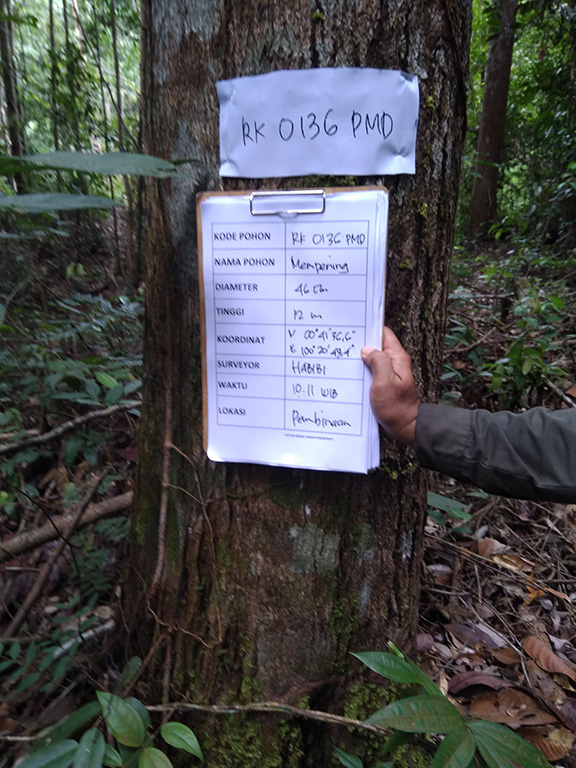 RK 0136 PMD
KODE POHON RK 0136 PMD
NAMA POHON Mempening
DIAMETER 46 cm
TINGGI 12 m
KOORDINAT
00°41'36,6"
E 100°20'48,4"
SURVEYOR HABIBI
WAKTU 10:11 WIB
LOKASI